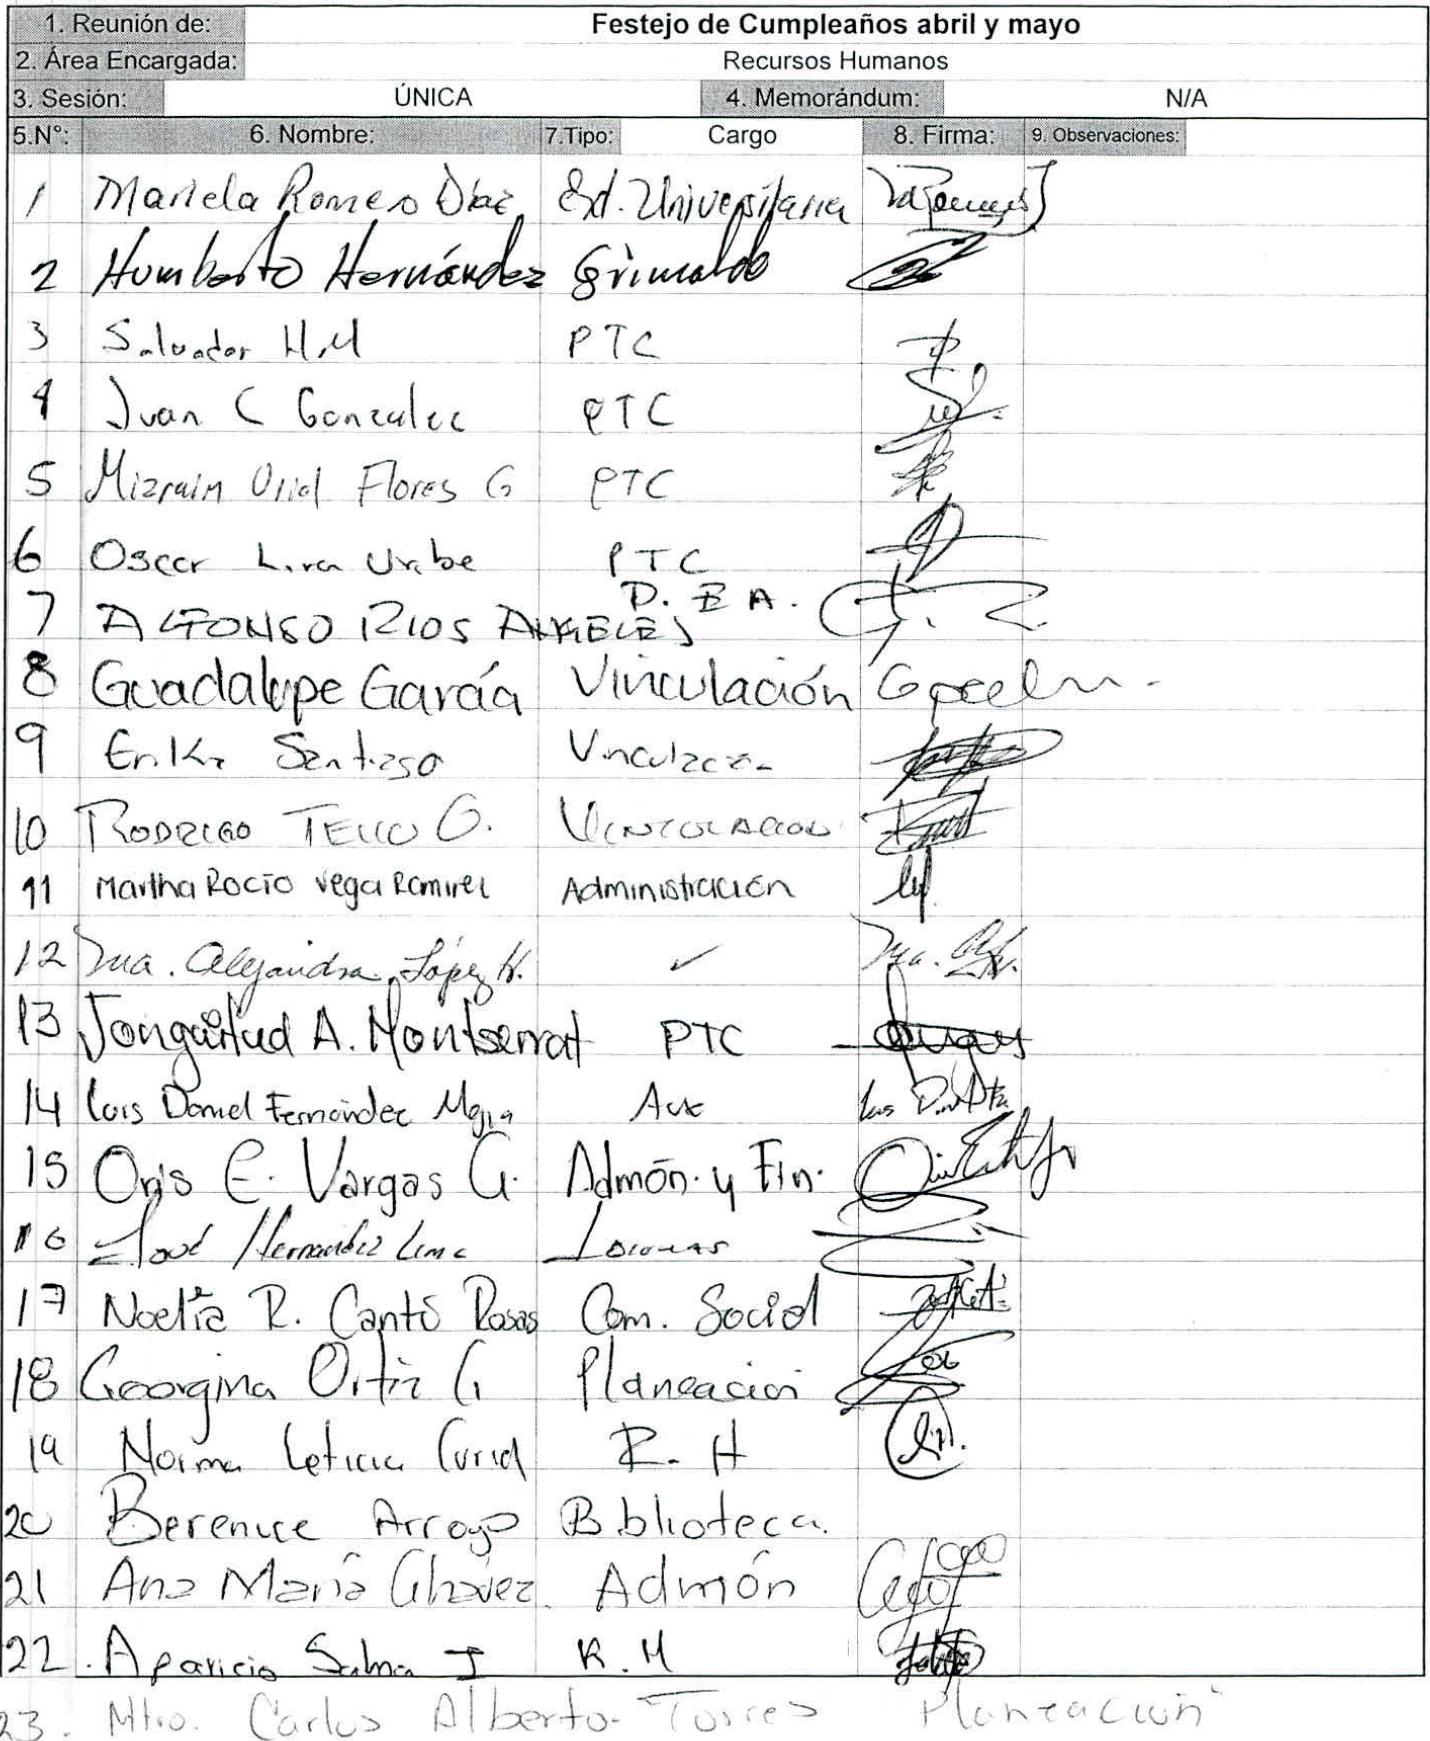 1. Reunión de: Festejo de Cumpleaños abril y mayo
2. Área Encargada: Recursos Humanos
3. Sesión: ÚNICA 4. Memorándum: N/A
5.N°: 6. Nombre: 7.Tipo: Cargo 8. Firma: 9. Observaciones:
1 Mariela Romero Díaz Ext. Universitaria
2 Humberto Hernández Grimaldo
3 Salvador H.M PTC
4 Juan C Gonzalez PTC
5 Mizraim Uriel Flores G PTC
6 Oscar Lira Uribe PTC
7 ALFONSO RIOS ANGELES D. E A.
8 Guadalupe García Vinculación
9 Erika Santiago Vinculación
10 RODRIGO TELLO G. VINCULACION
11 Martha Rocío Vega Ramirez Administración
12 Ma. Alejandra López H. ✓ Ma.
13 Jonguitud A. Montserrat PTC
14 Luis Daniel Fernández Mejia Aux Luis
15 Oris E. Vargas G. Admón. y Fin.
16 José Hernandez Lima Idiomas
17 Noelia R. Cantó Rosas Com. Social
18 Georgina Ortiz G Planeación
19 Norma Leticia Curiel R. H
20 Berenice Arroyo Biblioteca.
21 Ana María Chávez. Admón
22. Aparicio Salma I R. H
23. Mtro. Carlos Alberto Torres Planeación